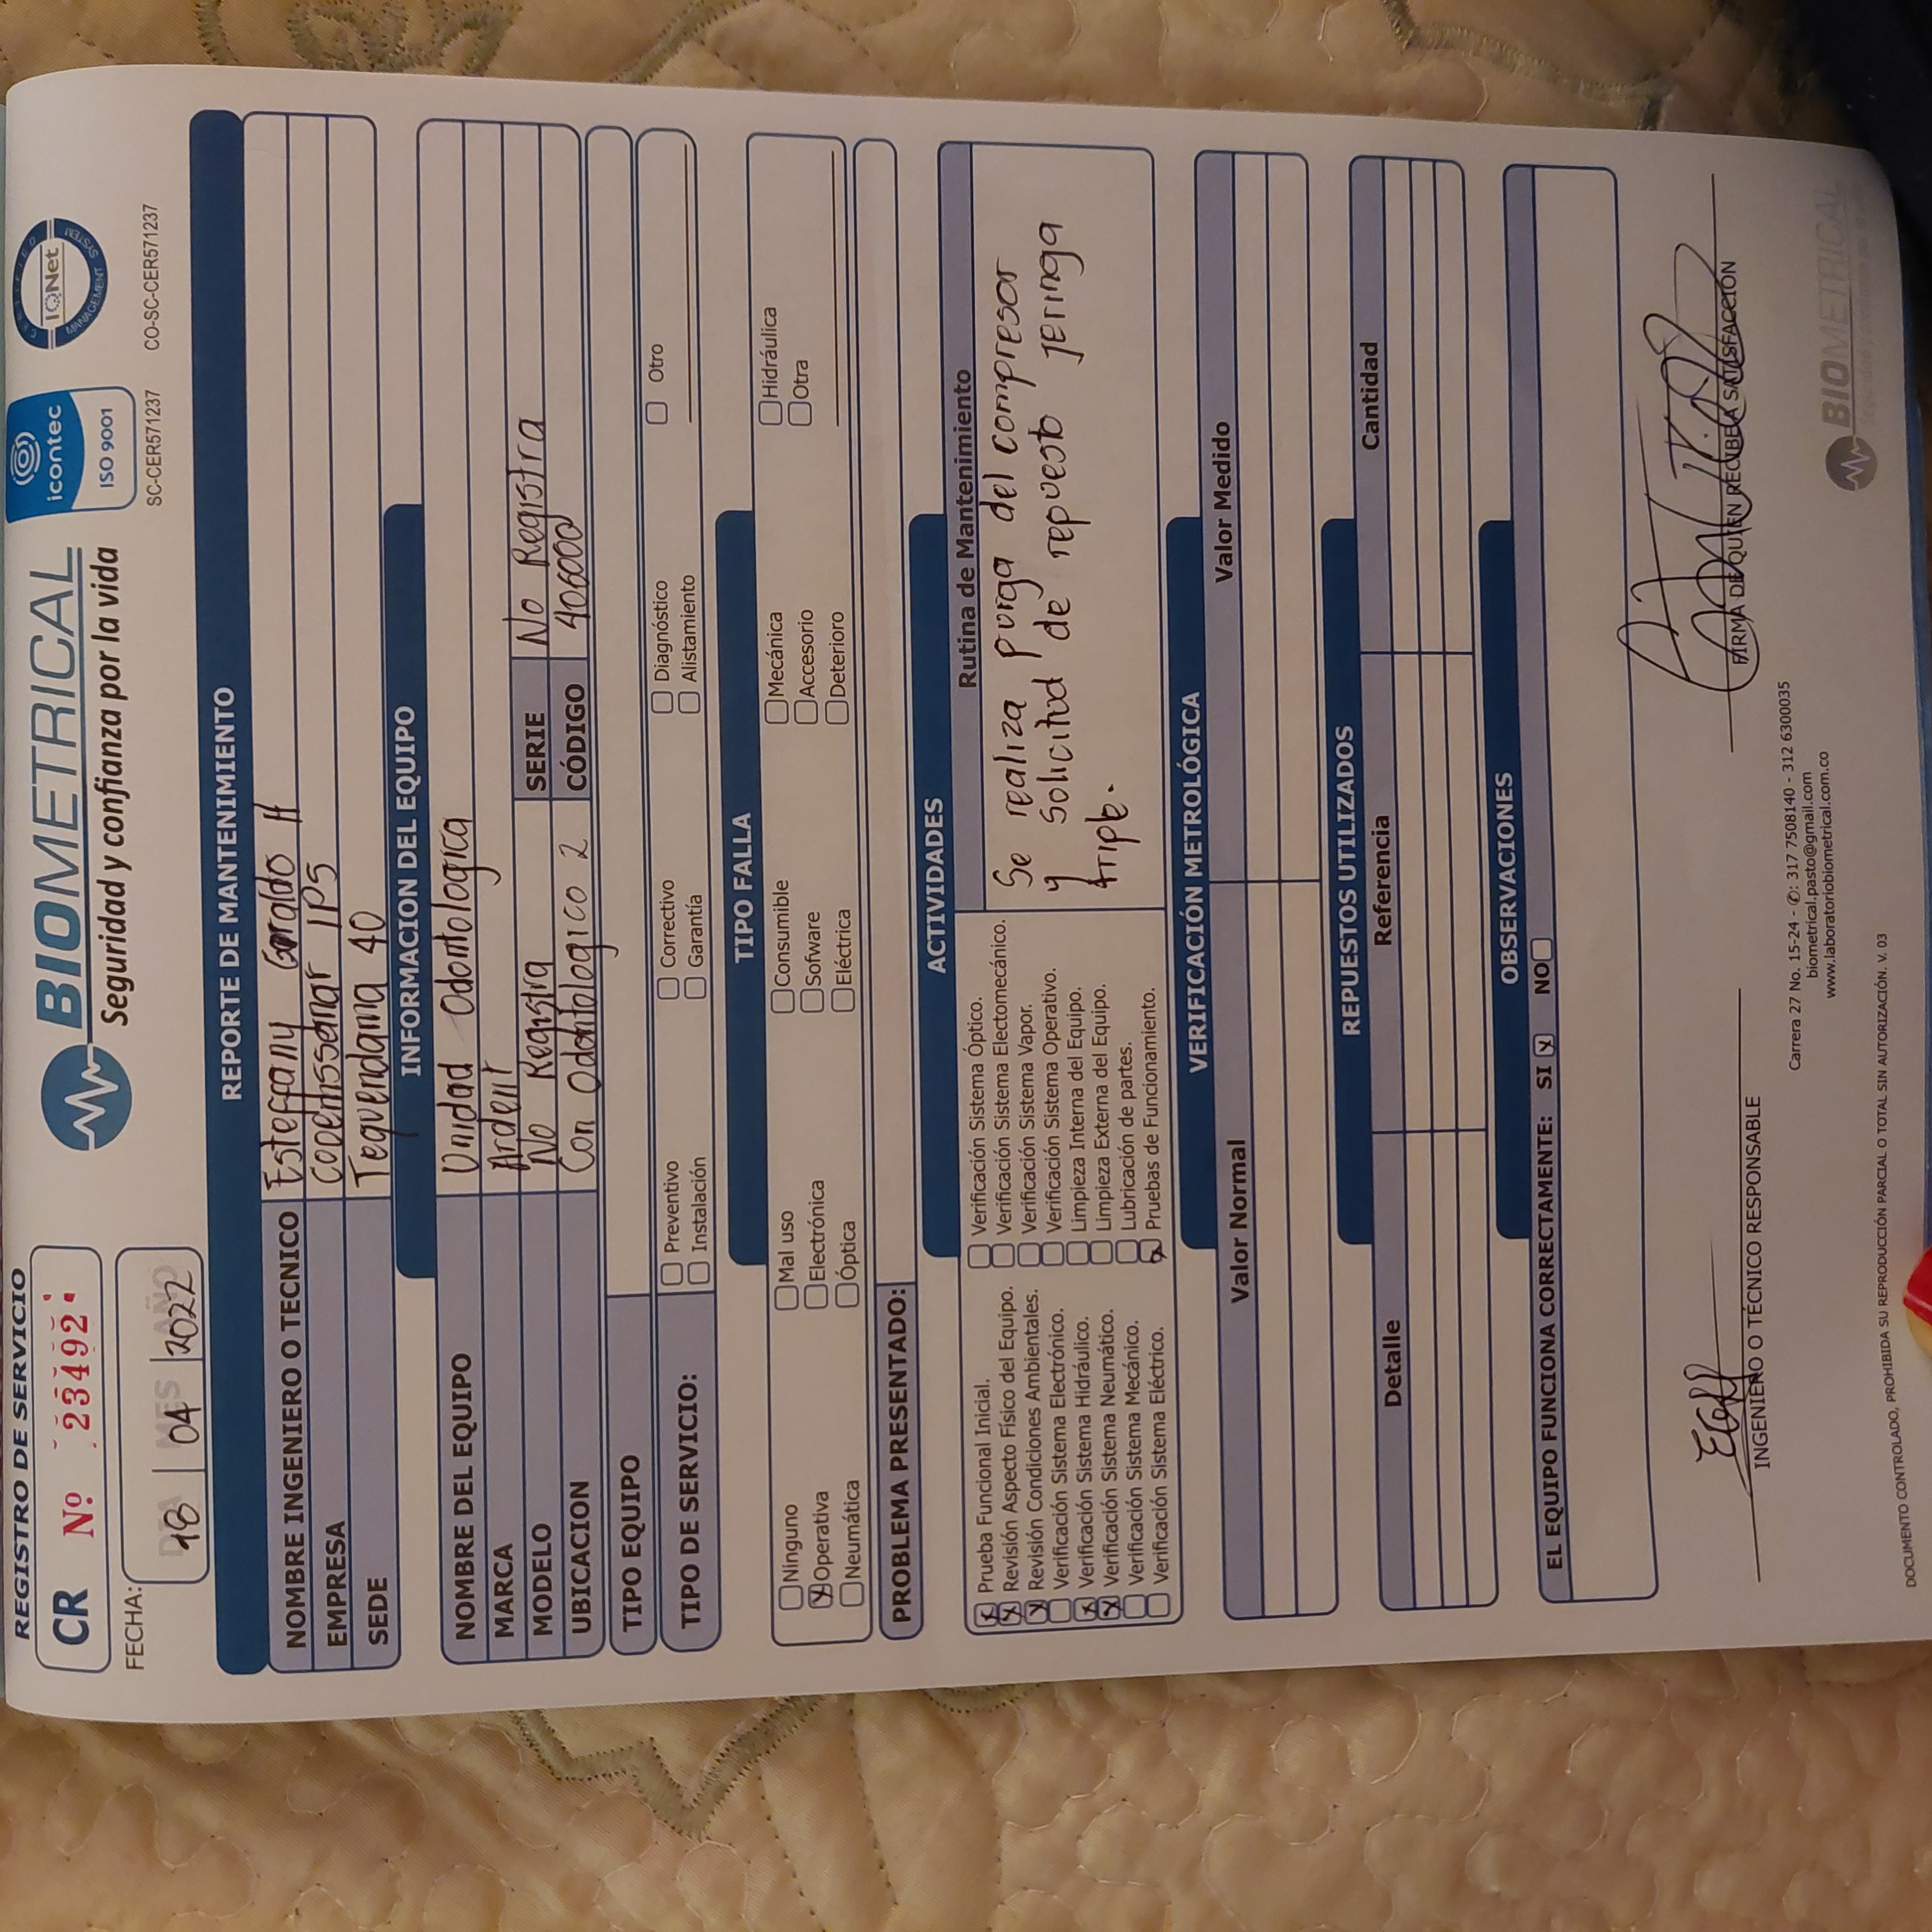 REGISTRO DE SERVICIO
CR Nº 23492
BIOMETRICAL
Seguridad y confianza por la vida
icontec
ISO 9001
SC-CER571237
CERTIFIED
IQNet
MANAGEMENT SYSTEM
CO-SC-CER571237
FECHA:
DIA MES AÑO
18 04 2022
REPORTE DE MANTENIMIENTO
NOMBRE INGENIERO O TECNICO Esteffany Giraldo H
EMPRESA IPS
SEDE Tequendama 40
INFORMACION DEL EQUIPO
NOMBRE DEL EQUIPO Unidad Odontologica
MARCA Ardent
MODELO No Registra SERIE No Registra
UBICACION Con Odontologico 2 CÓDIGO 406000
TIPO EQUIPO
TIPO DE SERVICIO:
Preventivo Correctivo Diagnóstico Otro
Instalación Garantía Alistamiento
TIPO FALLA
Ninguno Mal uso Consumible Mecánica Hidráulica
Operativa Electrónica Sofware Accesorio Otra
Neumática Óptica Eléctrica Deterioro
PROBLEMA PRESENTADO:
ACTIVIDADES
Prueba Funcional Inicial.
Revisión Aspecto Físico del Equipo.
Revisión Condiciones Ambientales.
Verificación Sistema Electrónico.
Verificación Sistema Hidráulico.
Verificación Sistema Neumático.
Verificación Sistema Mecánico.
Verificación Sistema Eléctrico.
Verificación Sistema Óptico.
Verificación Sistema Electomecánico.
Verificación Sistema Vapor.
Verificación Sistema Operativo.
Limpieza Interna del Equipo.
Limpieza Externa del Equipo.
Lubricación de partes.
Pruebas de Funcionamiento.
Rutina de Mantenimiento
Se realiza purga del compresor
y solicitud de repuesto jeringa
triple.
VERIFICACIÓN METROLÓGICA
Valor Normal Valor Medido
REPUESTOS UTILIZADOS
Detalle Referencia Cantidad
OBSERVACIONES
EL EQUIPO FUNCIONA CORRECTAMENTE: SI X NO
INGENIERO O TÉCNICO RESPONSABLE
FIRMA DE QUIEN RECIBE A SATISFACCIÓN
Carrera 27 No. 15-24 - ✆: 317 7508140 - 312 6300035
biometrical.pasto@gmail.com
www.laboratoriobiometrical.com.co
BIOMETRICAL
Seguridad y confianza por la vida
DOCUMENTO CONTROLADO, PROHIBIDA SU REPRODUCCIÓN PARCIAL O TOTAL SIN AUTORIZACIÓN. V. 03